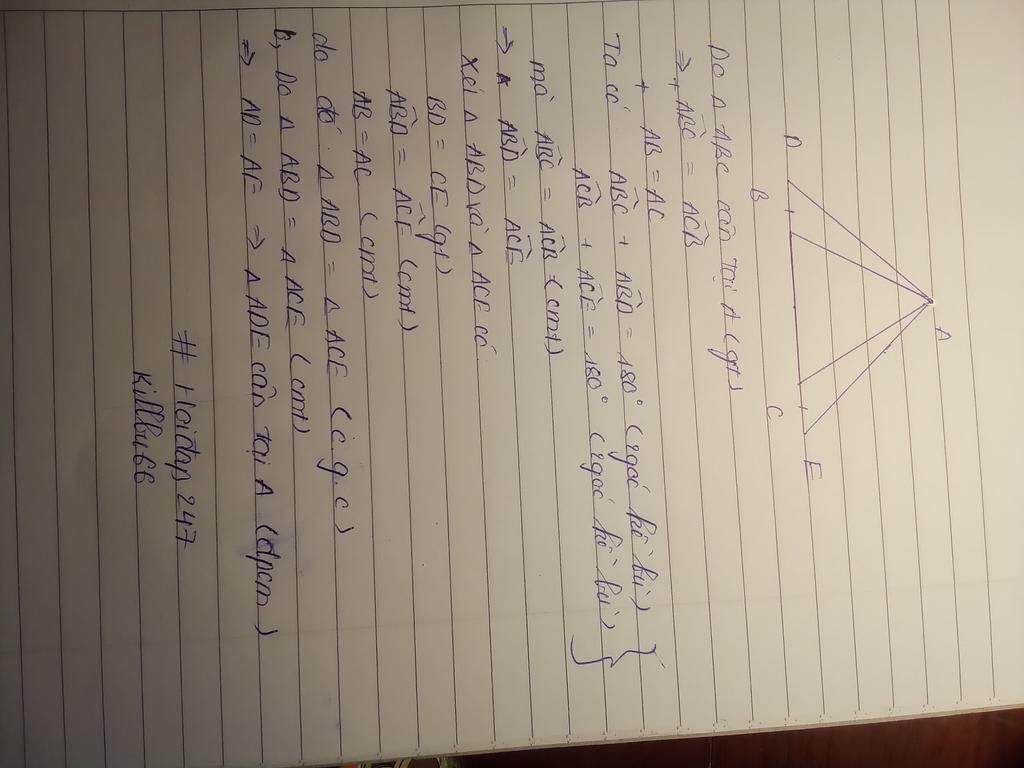 A
D B C E
Do Δ ABC cân tại A (gt)
=> + ABC = ACB
+ AB = AC
Ta có ABC + ABD = 180° (2 góc kề bù)
ACB + ACE = 180° (2 góc kề bù)
mà ABC = ACB (cmt)
=> ABD = ACE
Xét Δ ABD và Δ ACE có
BD = CE (gt)
ABD = ACE (cmt)
AB = AC (cmt)
do đó Δ ABD = Δ ACE (c.g.c)
b, Do Δ ABD = Δ ACE (cmt)
=> AD = AE => Δ ADE cân tại A (đpcm)
# Hoidap247